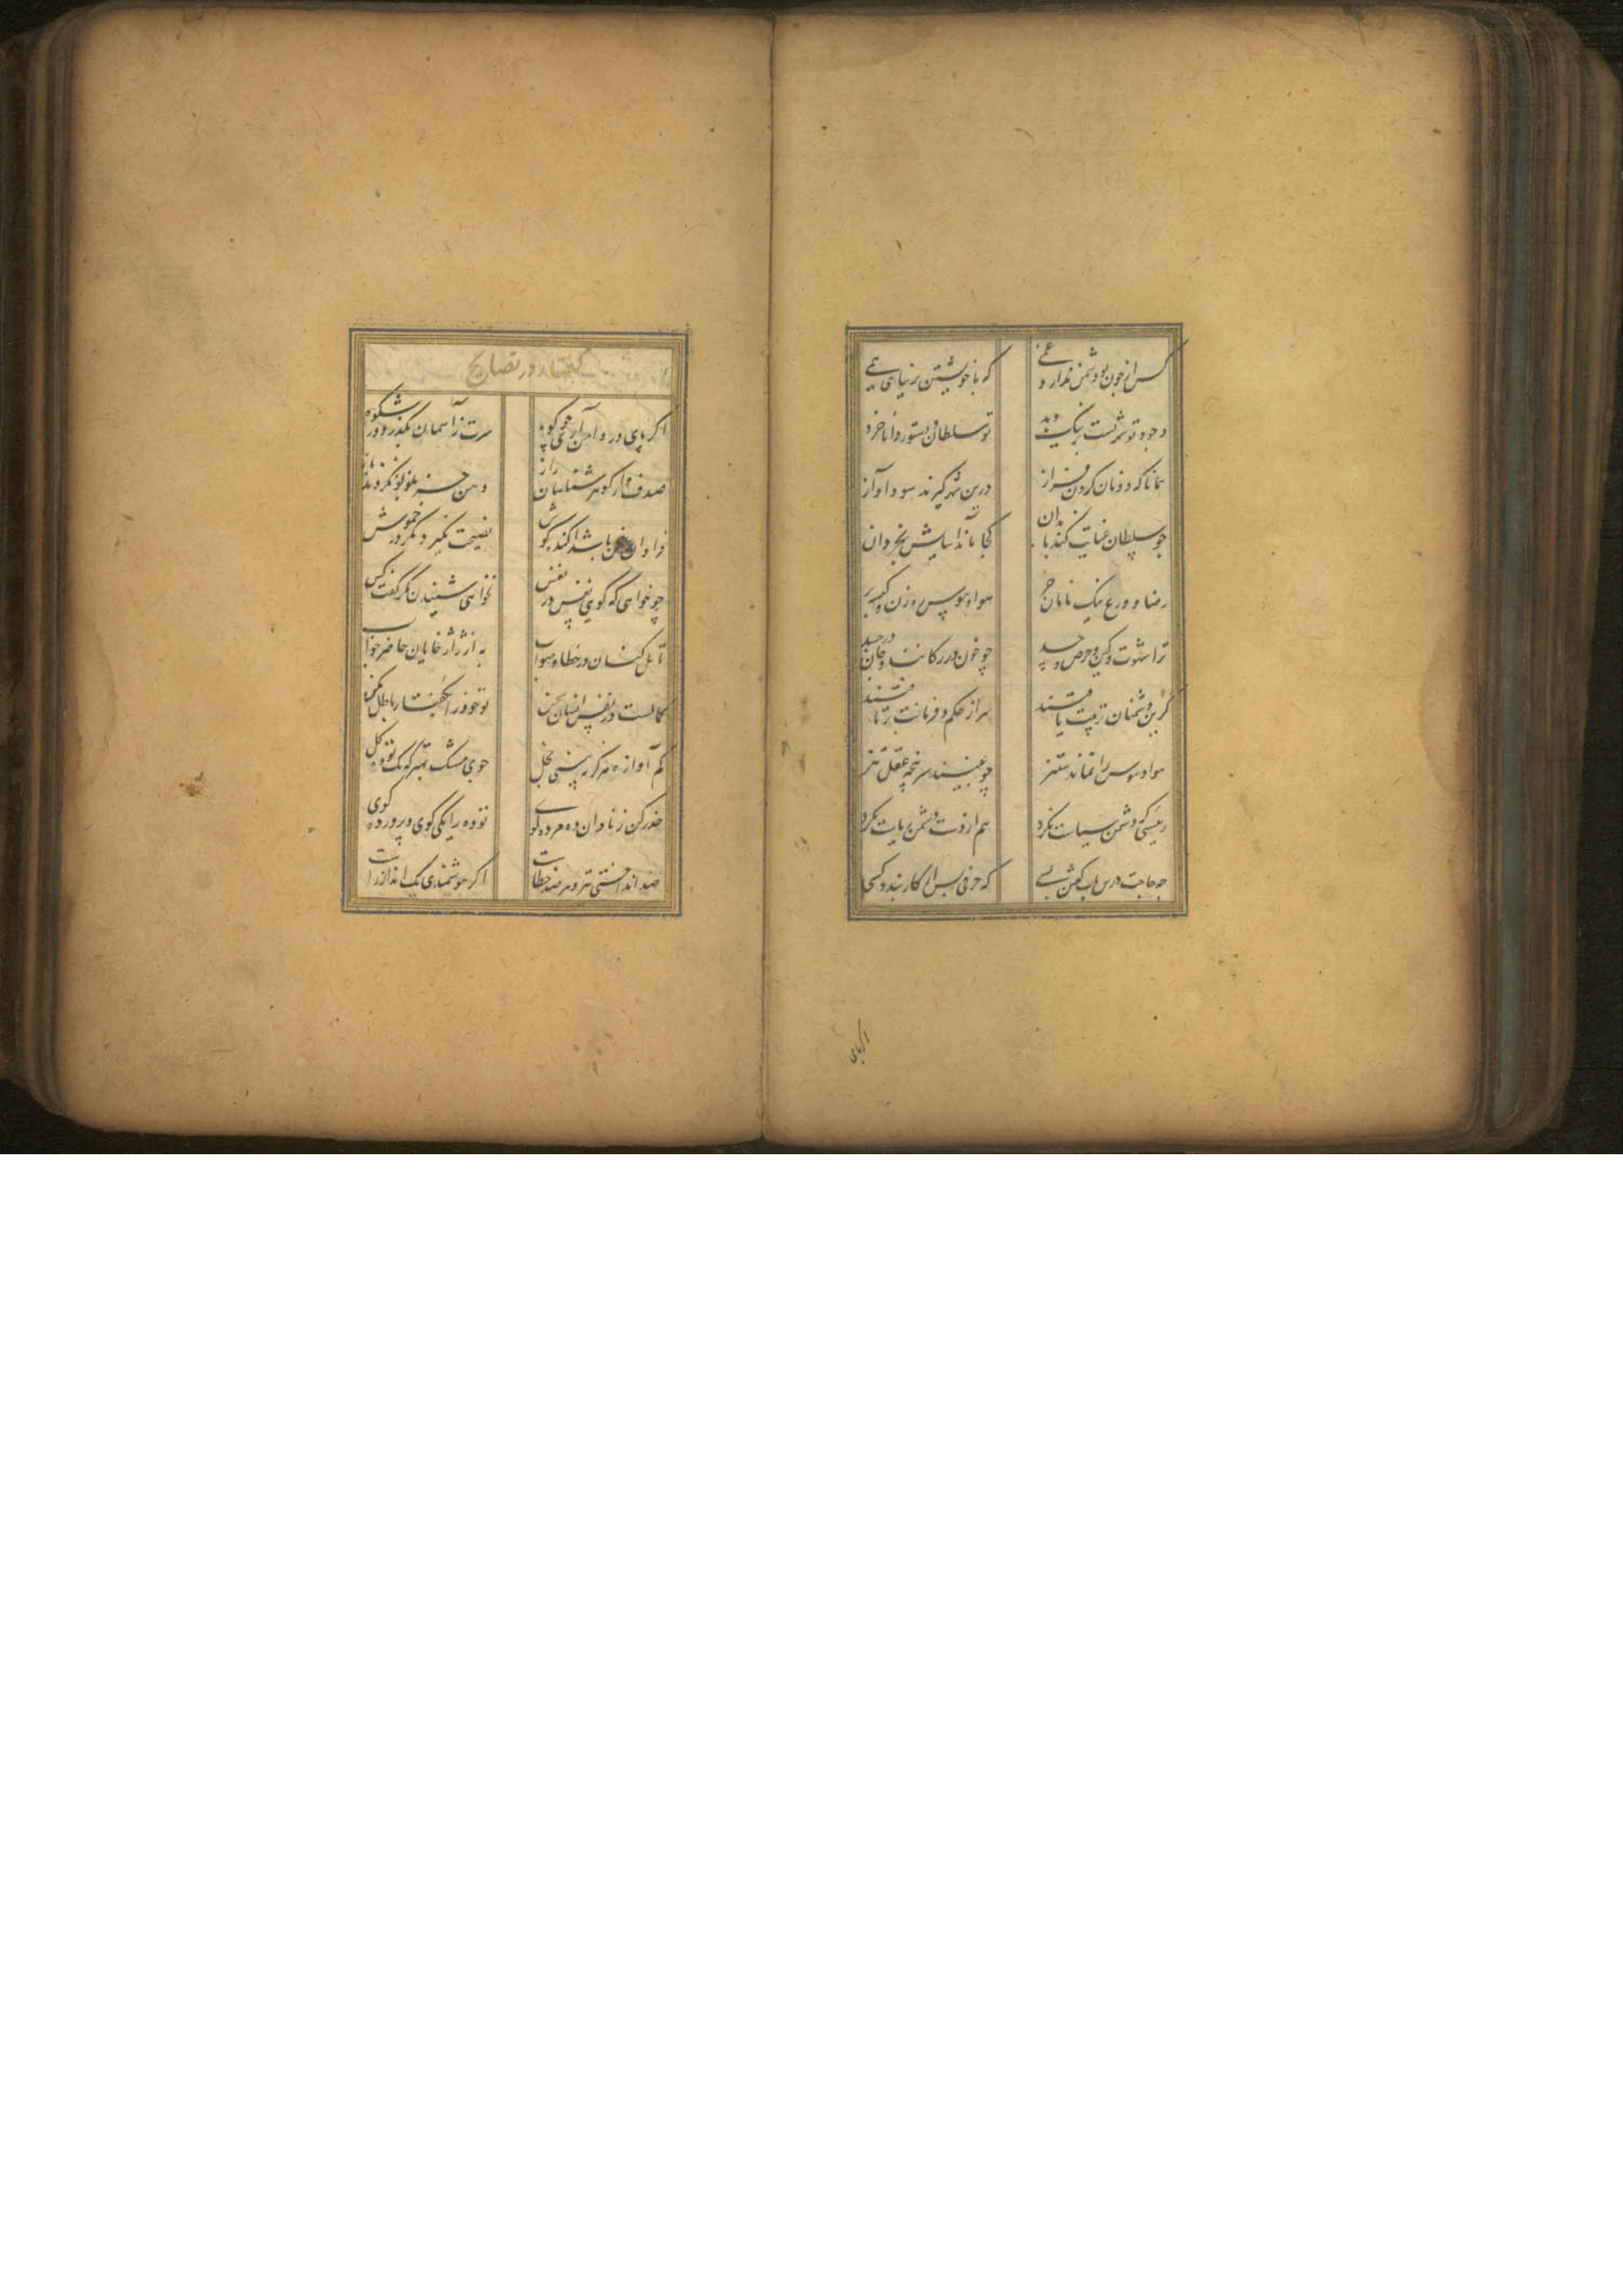 کس از چون تو دشمن ندارد غمی که با خویشتن بر نیاید همی
وجود تو شهریست پر نیک و بد تو سلطان و دستور دانا خرد
همانا که دونان گردن فراز درین شهر گیرند سودا و آز
چو سلطان عنایت کند با بدان کجا ماند آسایش بخردان
رضا و ورع نیک نامان حر هوا و هوس رهزن و کیسه بر
ترا شهوت و کین و حرص و حسد چو خون در رگانند و جان در جسد
گر این دشمنان تربیت یافتند سر از حکم و فرمانت برتافتند
هوا و هوس را نماند ستیز چو بینند سرپنجه عقل تیز
رئیسی که دشمن سیاست نکرد هم از دست دشمن ریاست نکرد
چه حاجت درین باب گفتن بسی که حرفی بس ار کار بندد کسی
اگر پای
گفتار در نصایح
اگر پای در دامن آری چو کوه سرت ز آسمان بگذرد در شکوه
صدف وار گوهر شناسان راز دهن جز بلولو نکردند باز
فراوان سخن باشد آکنده گوش نصیحت نگیرد مگر در خموش
چو خواهی که گویی نفس در نفس نخواهی شنیدن مگر گفت کس
تامل کنان در خطا و صواب به از ژاژخایان حاضر جواب
کمالست در نفس انسان سخن تو خود را بگفتار باطل مکن
کم آواز هرگز نبینی خجل جوی مشک بهتر که یک توده گل
حذر کن ز نادان ده مرده گوی
صد انداختی تیر و هر صد خطاست اگر هوشمندی یک انداز راست